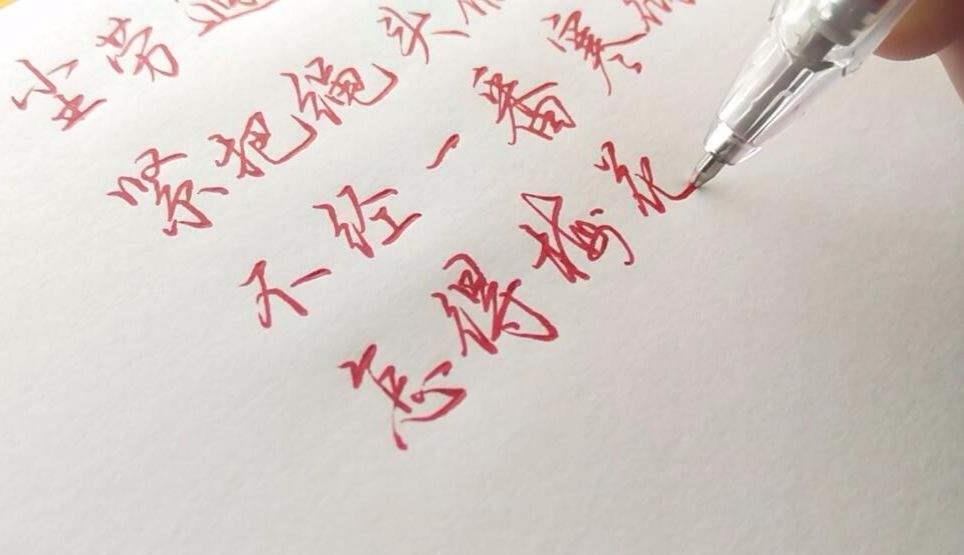 尘劳
紧把绳头
不经一番寒
怎得梅花